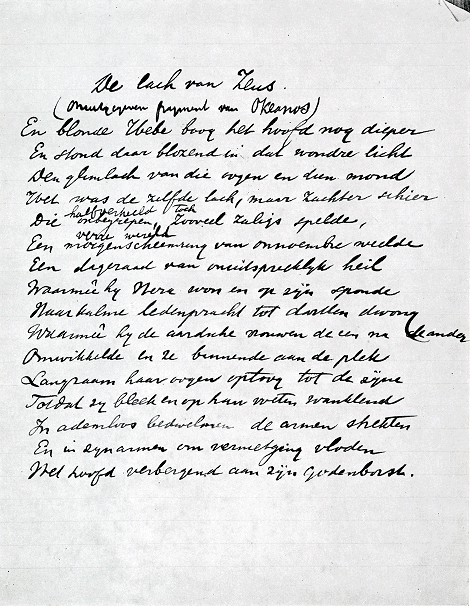 De lach van Zeus.
(Onuitgegeven fragment van Okeanos)
En blonde Hebe boog het hoofd nog dieper
En stond daar blozend in dat wondre licht
Den glimlach van die oogen en dien mond
Het was de zelfde lach, maar zachter schier
halfverheeld toch
Die onbegrepen, zooveel zaligs spelde,
verre wereld
Een morgenschemering van weelde
Een dageraad van onuitspreeklijk heil
Waarmeê hy Hera won en op zijn sponde
Haar kalme ledenpracht tot dwong
Waarmeê hy de aardsche vrouwen de een na de ander
Omwikkelde en ze binnende aan de plek
Langzaam haar oogen optoog tot de zijne
Totdat zy bleek en op haar voeten wankelend
In ademloos bedwelmen de armen strekten
En in zyn armen om vernietging vloden
Het hoofd verbergend aan zijn godenborst.